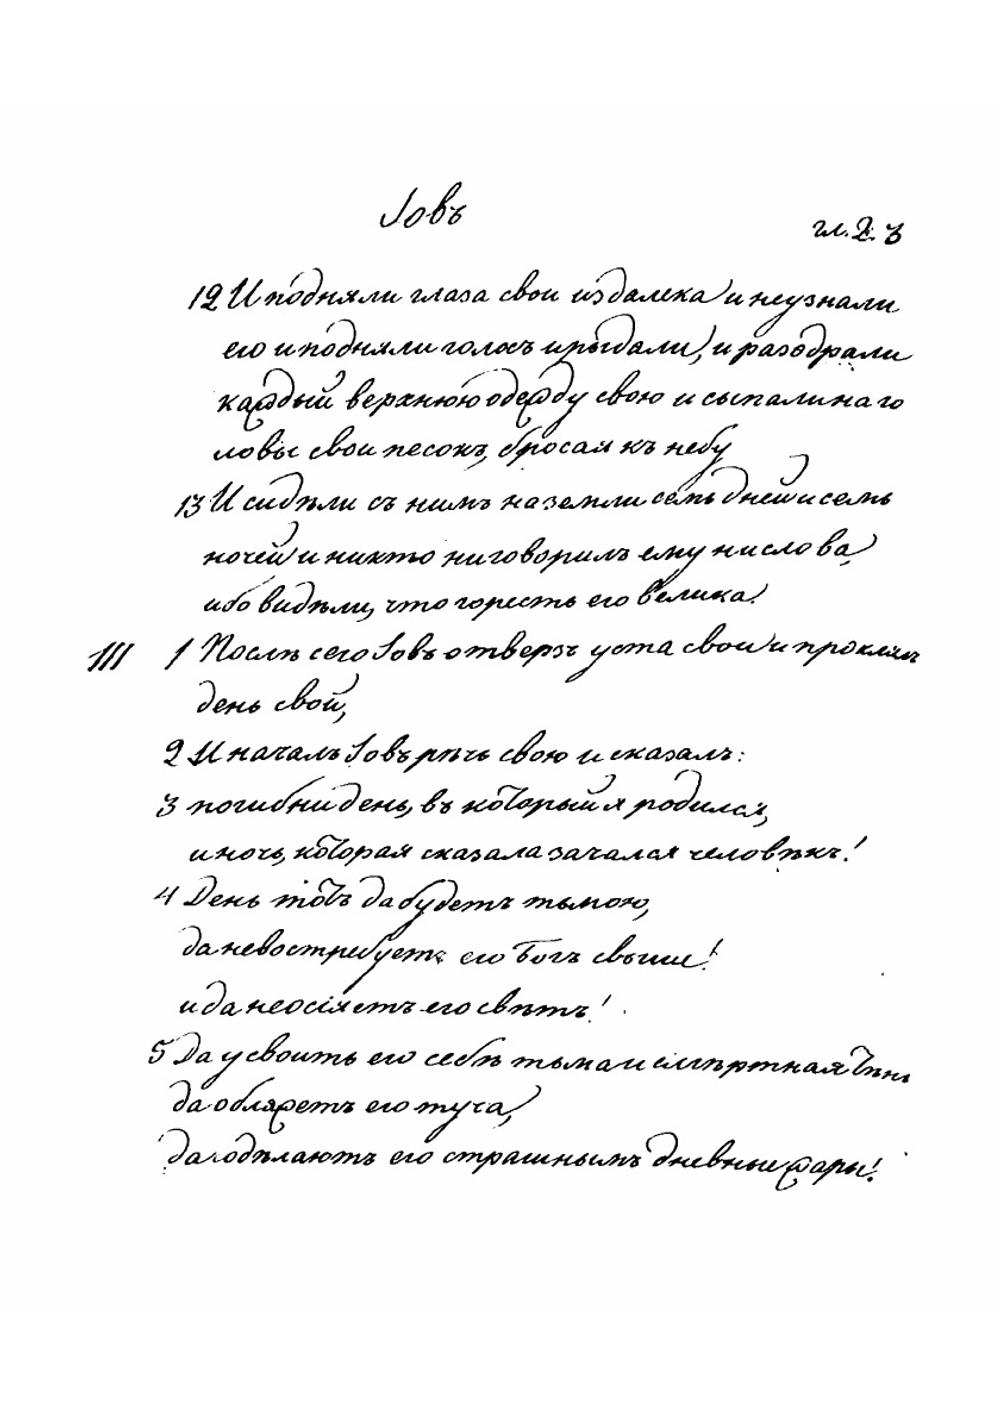 Іовъ
гл. 2. 3
12 И подняли глаза свои издалека и неузнали
его и подняли голосъ и рыдали, и разодрали
каждый верхнюю одежду свою и сыпали на го
ловы свои песокъ, бросая къ небу
13 И сидѣли съ нимъ на земли семь дней и семь
ночей и никто ни говорилъ ему ни слова,
ибо видѣли, что горесть его велика.
III 1 Послѣ сего Іовъ отверзъ уста свои и проклялъ
день свой,
2 И началъ Іовъ рѣчь свою и сказалъ:
3 погибни день, въ который я родился,
и ночь, которая сказала зачался человѣкъ!
4 День тотъ да будетъ тьмою,
да невостребуетъ его Богъ свыше!
и да неосіяетъ его свѣтъ!
5 Да усвоитъ его себѣ тьма и смѣртная тѣнь
да обляжетъ его туча,
да содѣлаютъ его страшнымъ дневные жары!